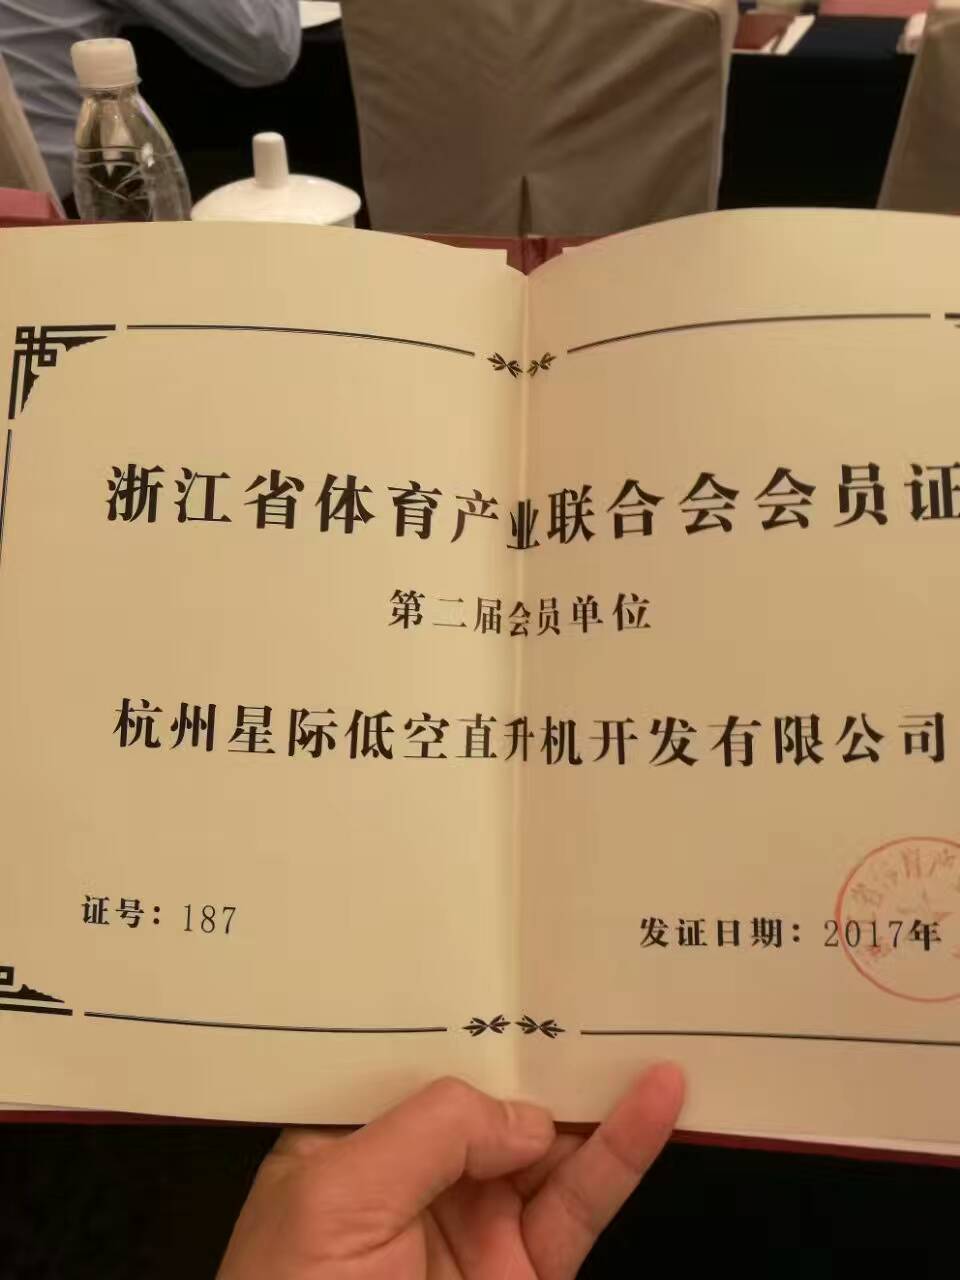 浙江省体育产业联合会会员证
第二届会员单位
杭州星际低空直升机开发有限公司
证号：187
发证日期：2017年